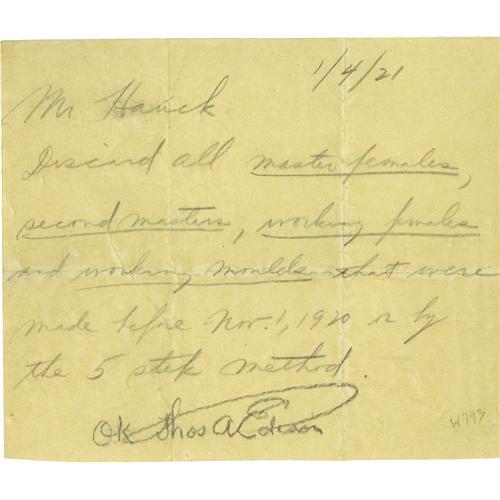 1/4/21
Mr Hauck
Discard all master females,
second masters, working females
and working moulds that were
made before Nov. 1, 1920 or by
the 5 step method.
OK Thos A Edison
W793